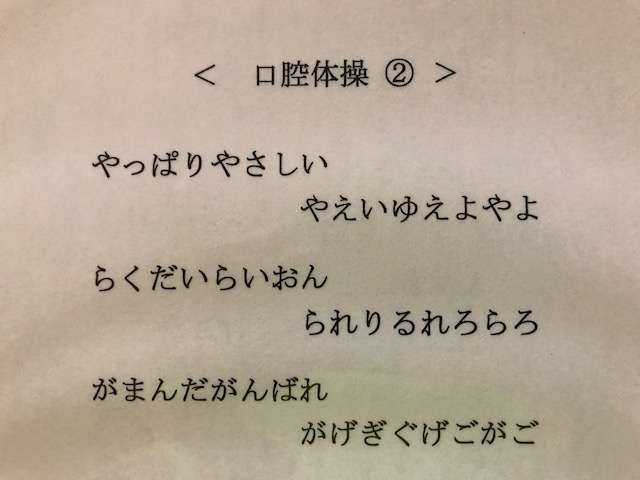 ＜　口腔体操 ② ＞
やっぱりやさしい
やえいゆえよやよ
らくだいらいおん
られりるれろらろ
がまんだがんばれ
がげぎぐげごがご